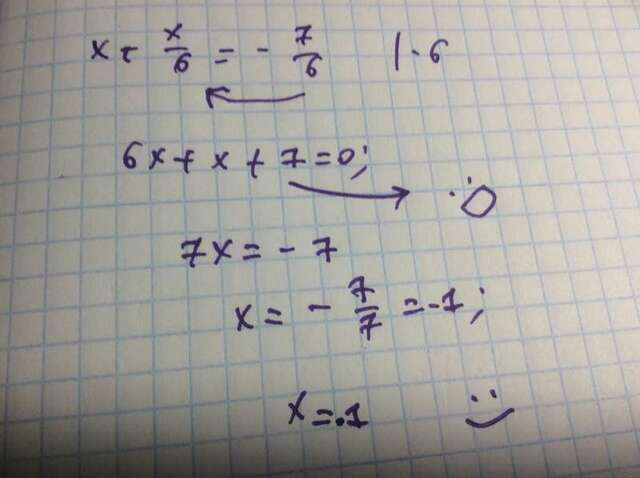 x + x/6 = - 7/6 | · 6
6x + x + 7 = 0;
7x = - 7
x = - 7/7 = -1;
x = -1